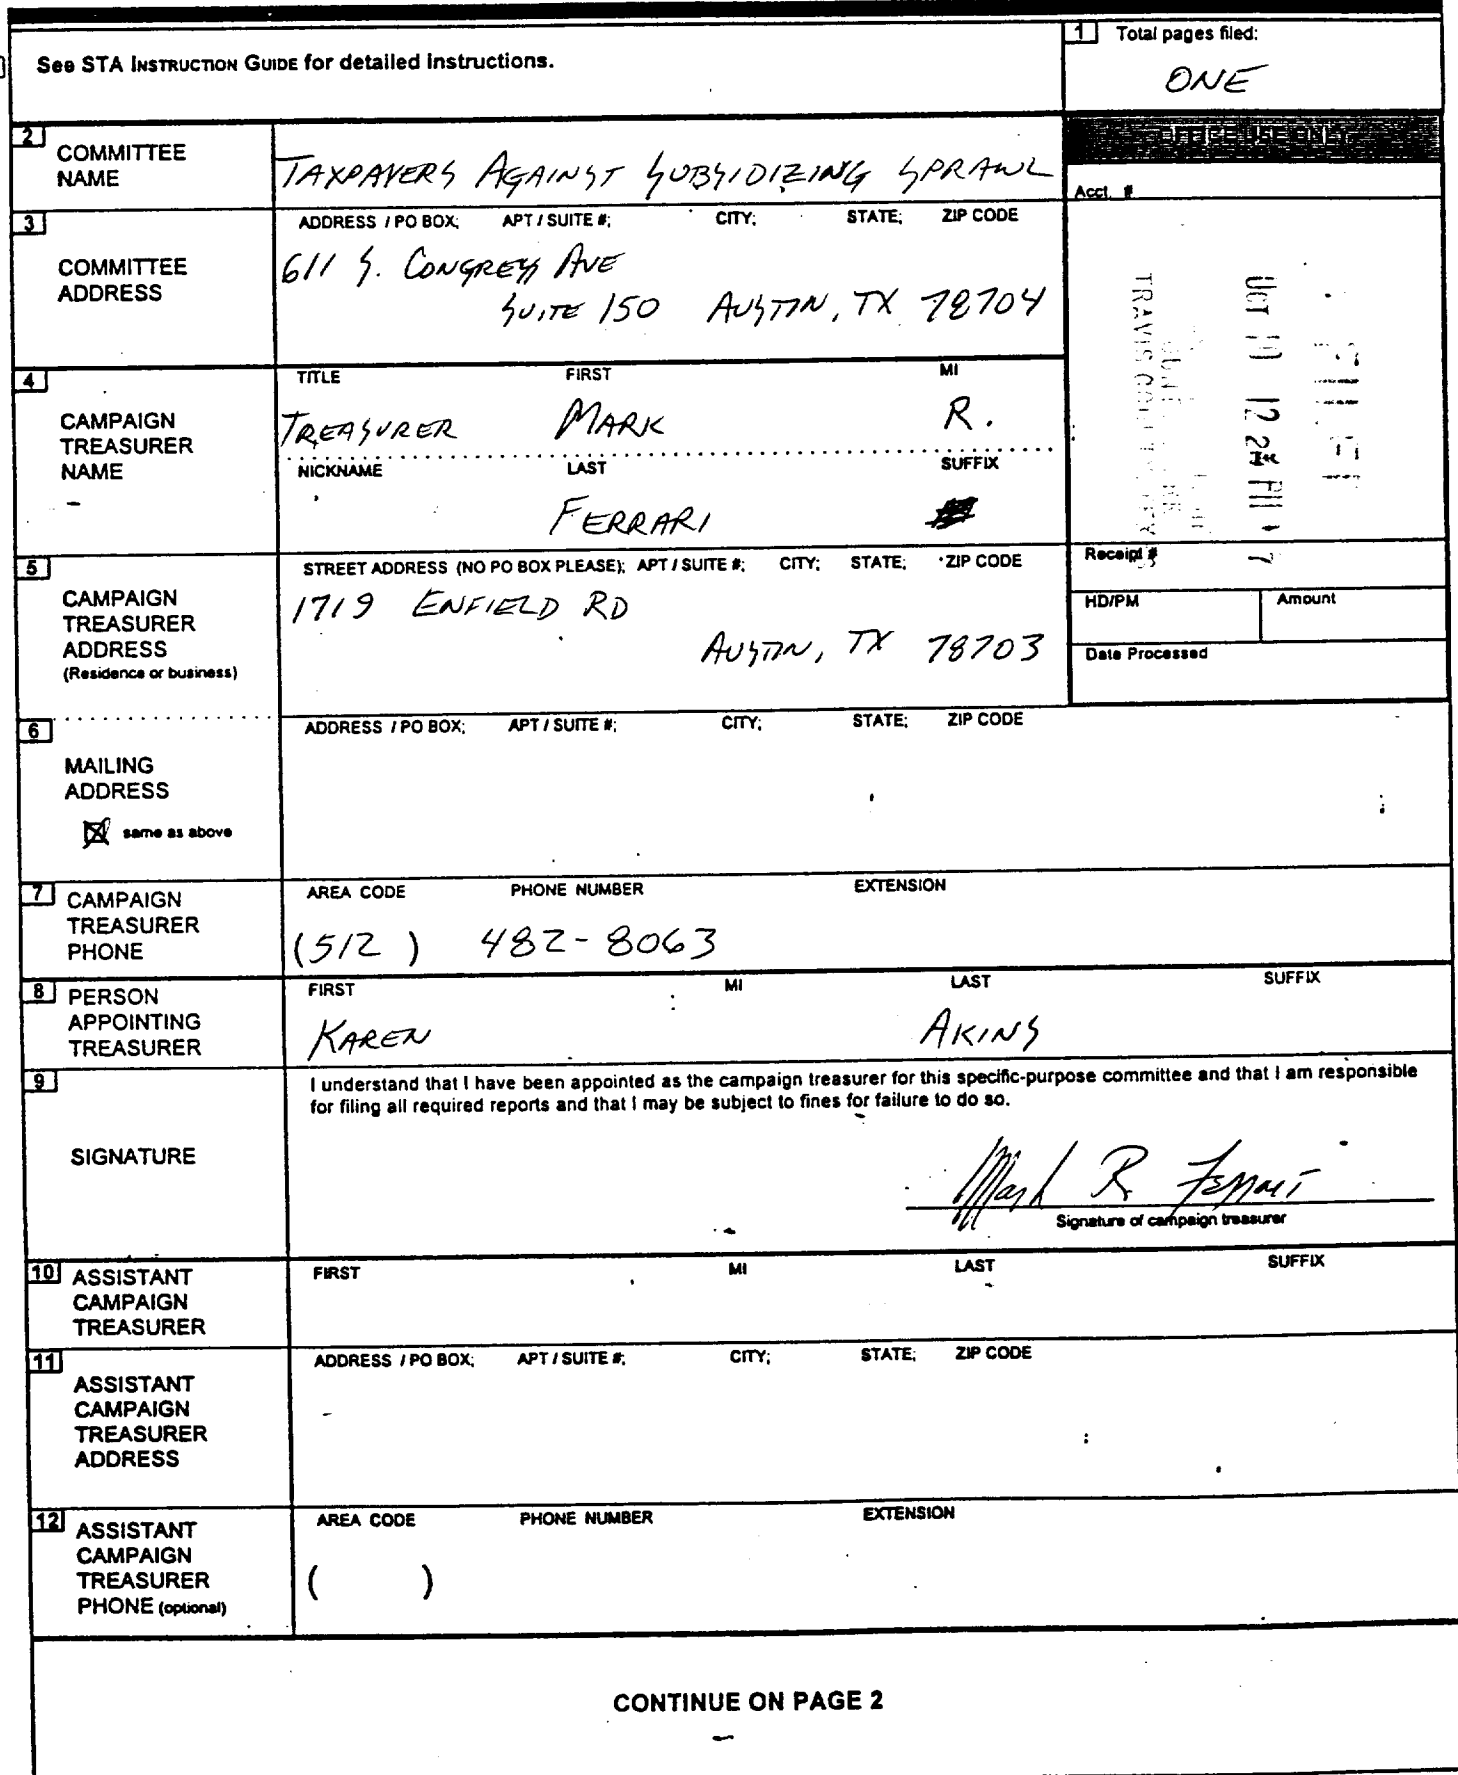 See STA INSTRUCTION GUIDE for detailed instructions.
1 Total pages filed:
ONE
2 COMMITTEE NAME
TAXPAYERS AGAINST SUBSIDIZING SPRAWL
OFFICE USE ONLY
Acct. #
3 COMMITTEE ADDRESS
ADDRESS / PO BOX; APT / SUITE #; CITY; STATE; ZIP CODE
611 S. CONGRESS AVE
SUITE 150 AUSTIN, TX 78704
4 CAMPAIGN TREASURER NAME
TITLE FIRST MI
TREASURER MARK R.
NICKNAME LAST SUFFIX
FERRARI
TRAVIS
OCT
12
Receipt #
HD/PM Amount
Date Processed
5 CAMPAIGN TREASURER ADDRESS
(Residence or business)
STREET ADDRESS (NO PO BOX PLEASE); APT / SUITE #; CITY; STATE; ZIP CODE
1719 ENFIELD RD
AUSTIN, TX 78703
6 MAILING ADDRESS
same as above
ADDRESS / PO BOX; APT / SUITE #; CITY; STATE; ZIP CODE
7 CAMPAIGN TREASURER PHONE
AREA CODE PHONE NUMBER EXTENSION
(512) 482-8063
8 PERSON APPOINTING TREASURER
FIRST MI LAST SUFFIX
KAREN AKINS
9 SIGNATURE
I understand that I have been appointed as the campaign treasurer for this specific-purpose committee and that I am responsible
for filing all required reports and that I may be subject to fines for failure to do so.
Mark R Ferrari
Signature of campaign treasurer
10 ASSISTANT CAMPAIGN TREASURER
FIRST MI LAST SUFFIX
11 ASSISTANT CAMPAIGN TREASURER ADDRESS
ADDRESS / PO BOX; APT / SUITE #; CITY; STATE; ZIP CODE
12 ASSISTANT CAMPAIGN TREASURER PHONE (optional)
AREA CODE PHONE NUMBER EXTENSION
( )
CONTINUE ON PAGE 2